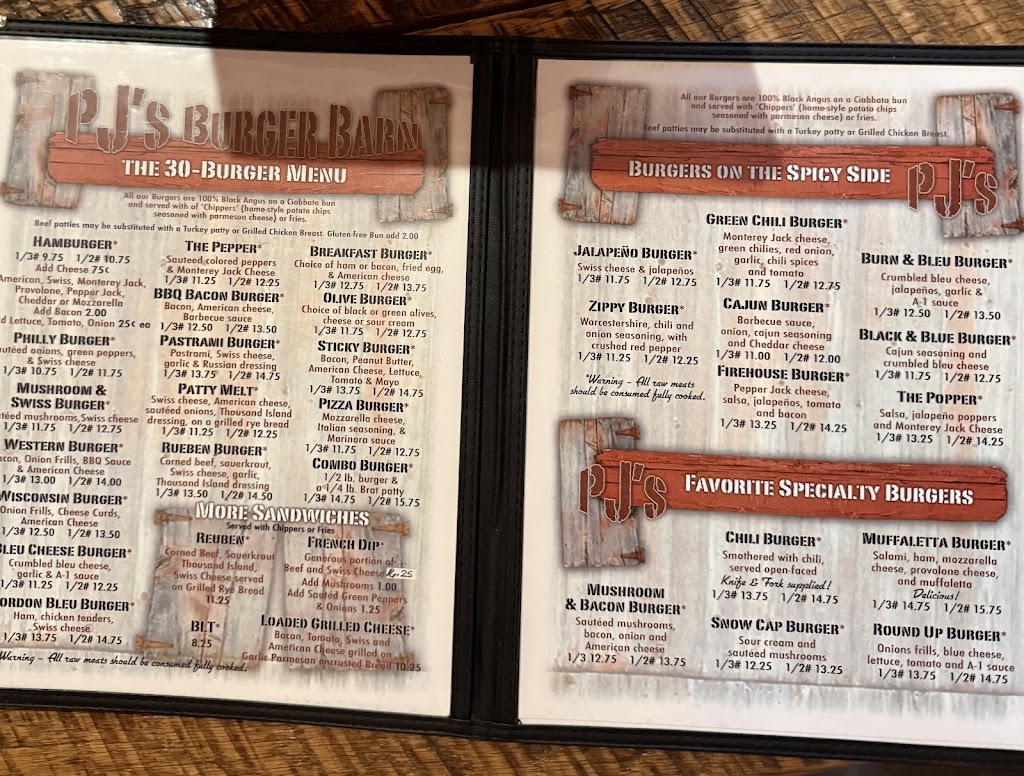 PJ's Burger Barn
The 30-Burger Menu
All our Burgers are 100% Black Angus on a Ciabbata bun
and served with of 'Chippers' (home-style potato chips
seasoned with parmesan cheese) or fries.
Beef patties may be substituted with a Turkey patty or Grilled Chicken Breast. Gluten-free Bun add 2.00
Hamburger*
1/3# 9.75 1/2# 10.75
Add Cheese 75¢
American, Swiss, Monterey Jack,
Provolone, Pepper Jack,
Cheddar or Mozzarella
Add Bacon 2.00
Lettuce, Tomato, Onion 25¢ ea
Philly Burger*
onions, green peppers,
& Swiss cheese
1/3# 10.75 1/2# 11.75
Mushroom &
Swiss Burger*
mushrooms, Swiss cheese
1/3# 11.75 1/2# 12.75
Western Burger*
Onion Frills, BBQ Sauce
& American Cheese
1/3# 13.00 1/2# 14.00
Wisconsin Burger*
Onion Frills, Cheese Curds,
American Cheese
1/3# 12.50 1/2# 13.50
Bleu Cheese Burger*
Crumbled bleu cheese,
garlic & A-1 sauce
1/3# 11.25 1/2# 12.25
Cordon Bleu Burger*
Ham, chicken tenders,
Swiss cheese
1/3# 13.75 1/2# 14.75
Warning - All raw meats should be consumed fully cooked.
The Pepper*
Sauteed colored peppers
& Monterey Jack Cheese
1/3# 11.25 1/2# 12.25
BBQ Bacon Burger*
Bacon, American cheese,
Barbecue sauce
1/3# 12.50 1/2# 13.50
Pastrami Burger*
Pastrami, Swiss cheese,
garlic & Russian dressing
1/3# 13.75 1/2# 14.75
Patty Melt*
Swiss cheese, American cheese,
sautéed onions, Thousand Island
dressing, on a grilled rye bread
1/3# 11.25 1/2# 12.25
Rueben Burger*
Corned beef, sauerkraut,
Swiss cheese, garlic,
Thousand Island dressing
1/3# 13.50 1/2# 14.50
Breakfast Burger*
Choice of ham or bacon, fried egg,
& American cheese
1/3# 12.75 1/2# 13.75
Olive Burger*
Choice of black or green olives,
cheese or sour cream
1/3# 11.75 1/2# 12.75
Sticky Burger*
Bacon, Peanut Butter,
American Cheese, Lettuce,
Tomato & Mayo
1/3# 13.75 1/2# 14.75
Pizza Burger*
Mozzarella cheese,
Italian seasoning, &
Marinara sauce
1/3# 11.75 1/2# 12.75
Combo Burger*
1/2 lb. burger &
a 1/4 lb. Brat patty
1/3# 14.75 1/2# 15.75
More Sandwiches
Served with Chippers or Fries
Reuben*
Corned Beef, Sauerkraut
Thousand Island,
Swiss Cheese served
on Grilled Rye Bread
11.25
BLT*
8.25
French Dip*
Generous portion of
Beef and Swiss Cheese
Add Mushrooms 1.00
Add Sautéd Green Peppers
& Onions 1.25
Loaded Grilled Cheese*
Bacon, Tomato, Swiss and
American Cheese grilled on
Garlic Parmesan encrusted Bread 10.25
All our Burgers are 100% Black Angus on a Ciabbata bun
and served with 'Chippers' (home-style potato chips
seasoned with parmesan cheese) or fries.
Beef patties may be substituted with a Turkey patty or Grilled Chicken Breast.
Burgers on the Spicy Side
PJ's
Jalapeño Burger*
Swiss cheese & jalapeños
1/3# 11.75 1/2# 12.75
Zippy Burger*
Worcestershire, chili and
onion seasoning, with
crushed red pepper
1/3# 11.25 1/2# 12.25
*Warning - All raw meats
should be consumed fully cooked.
Green Chili Burger*
Monterey Jack cheese,
green chilies, red onion,
garlic, chili spices
and tomato
1/3# 11.75 1/2# 12.75
Cajun Burger*
Barbecue sauce,
onion, cajun seasoning
and Cheddar cheese
1/3# 11.00 1/2# 12.00
Firehouse Burger*
Pepper Jack cheese,
salsa, jalapeños, tomato
and bacon
1/3# 13.25 1/2# 14.25
Burn & Bleu Burger*
Crumbled bleu cheese,
jalapeños, garlic &
A-1 sauce
1/3# 12.50 1/2# 13.50
Black & Blue Burger*
Cajun seasoning and
crumbled bleu cheese
1/3# 11.75 1/2# 12.75
The Popper*
Salsa, jalapeño poppers
and Monterey Jack Cheese
1/3# 13.25 1/2# 14.25
PJ's
Favorite Specialty Burgers
Mushroom
& Bacon Burger*
Sautéed mushrooms,
bacon, onion and
American cheese
1/3 12.75 1/2# 13.75
Chili Burger*
Smothered with chili,
served open-faced
Knife & Fork supplied!
1/3# 13.75 1/2# 14.75
Snow Cap Burger*
Sour cream and
sautéed mushrooms
1/3# 12.25 1/2# 13.25
Muffaletta Burger*
Salami, ham, mozzarella
cheese, provolone cheese,
and muffaletta
Delicious!
1/3# 14.75 1/2# 15.75
Round Up Burger*
Onions frills, blue cheese,
lettuce, tomato and A-1 sauce
1/3# 13.75 1/2# 14.75